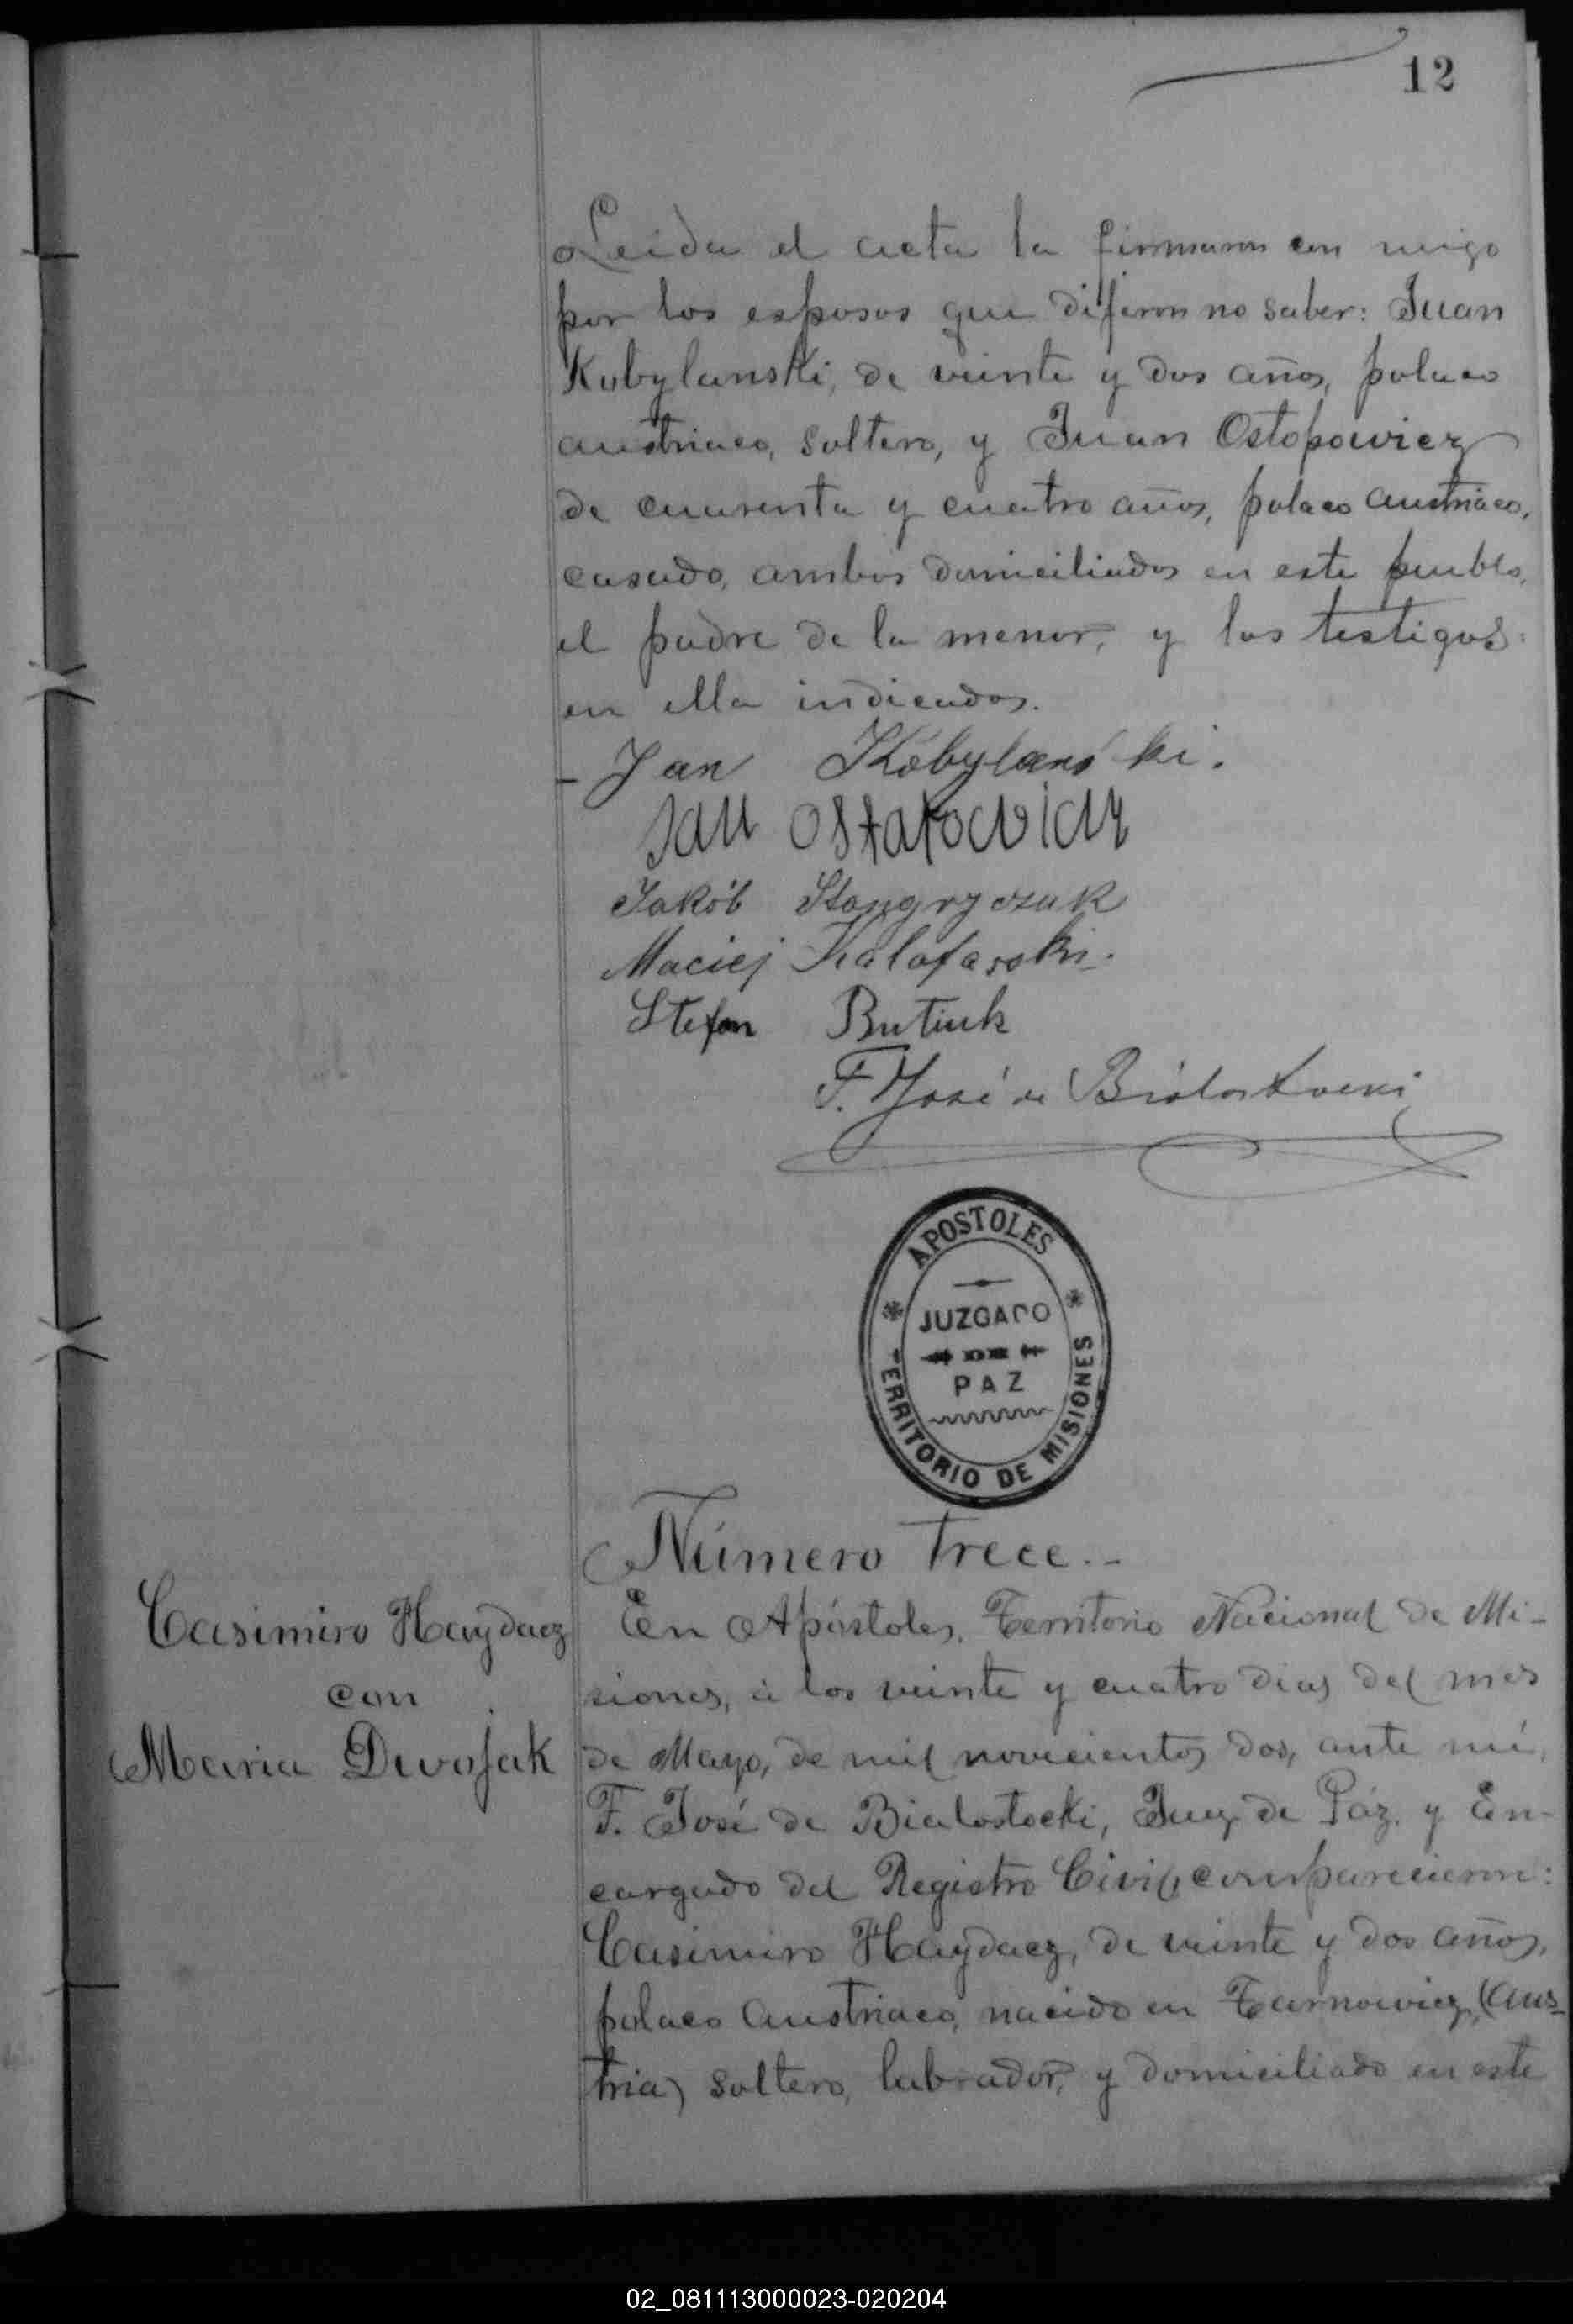 12
Leida el acta la firmaron con migo
por los esposos que dijeron no saber: Juan
Kobylanski, de veinte y dos años, polaco
austriaco, soltero, y Juan Ostopowicz
de cuarenta y cuatro años, polaco austriaco,
casado, ambos domiciliados en este pueblo,
el padre de la menor, y los testigos
en ella indicados.
Jan Kobylański.
Jan Ostapowicz
Jakób Stangryczuk
Maciej
Stefan Butiuk
F. José de Bialostocki
APOSTOLES
JUZGADO
DE
PAZ
TERRITORIO DE MISIONES
Número trece.-
Casimiro Haydacz
con
Maria Dwojak
En Apóstoles, Territorio Nacional de Mi-
siones, á los veinte y cuatro dias del mes
de Mayo, de mil novecientos dos, ante mí,
F. José de Bialostocki, Juez de Páz, y En-
cargado del Registro Civil, comparecieron:
Casimiro Haydacz, de veinte y dos años,
polaco austriaco, nacido en Tarnowicz, (Aus-
tria) soltero, labrador, y domiciliado en este
02_081113000023-020204